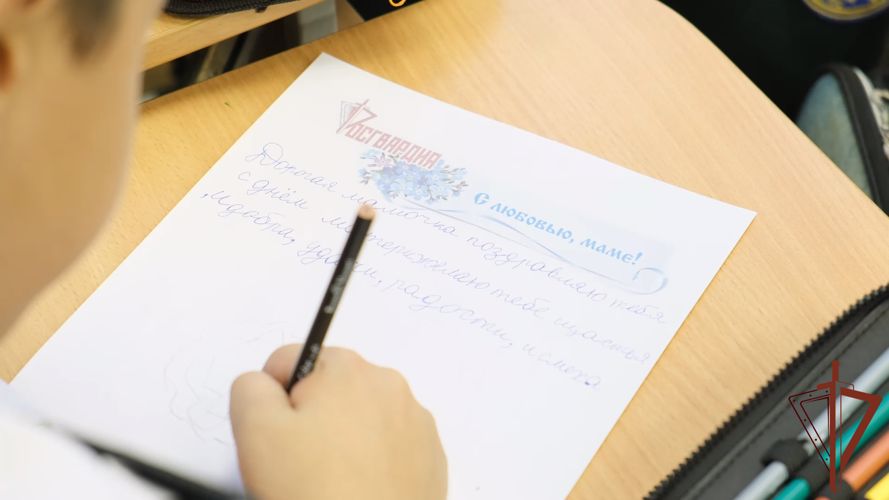 РОСГВАРДИЯ
С любовью, маме!
Дорогая мамочка поздравляю тебя
с днём матери желаю тебе щастья
и добра, удачи, радости, и смеха